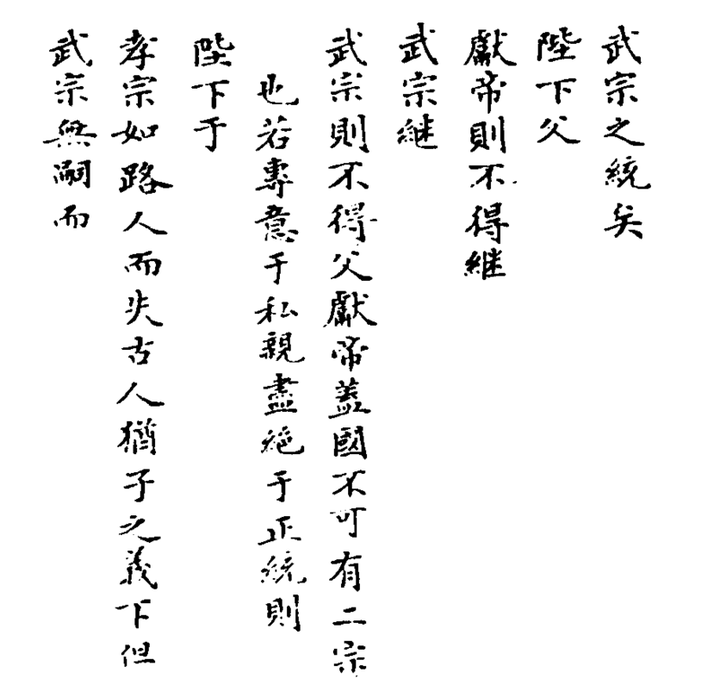 武宗之統矣
陛下父
獻帝則不得継
武宗継
武宗則不得父獻帝蓋國不可有二宗
也若專意于私親盡絶于正統則
陛下于
孝宗如路人而失古人猶子之義下但
武宗無嗣而